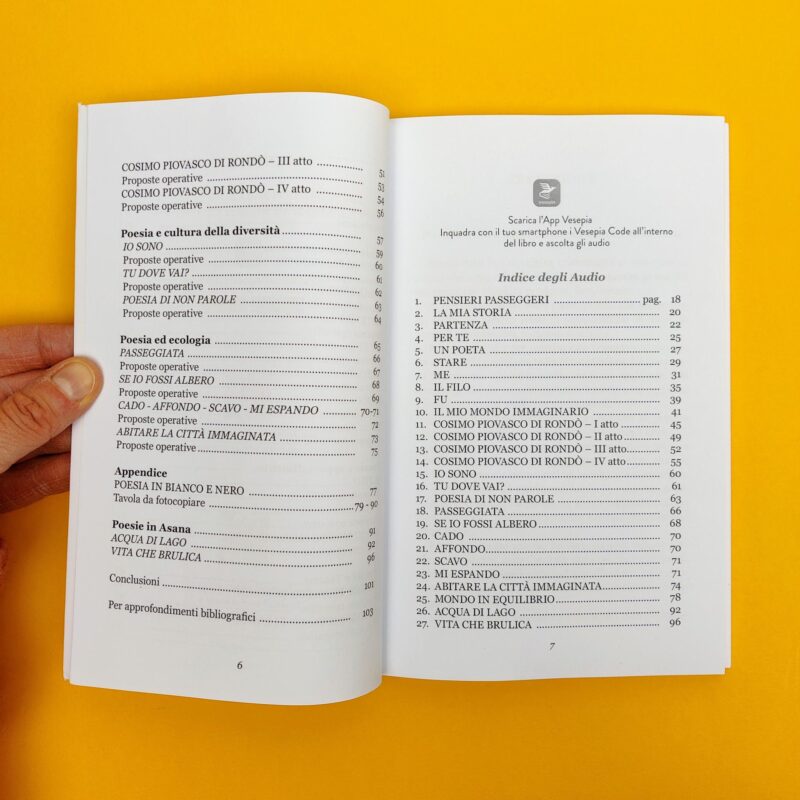 COSIMO PIOVASCO DI RONDÒ – III atto .................. 51
Proposte operative .................. 53
COSIMO PIOVASCO DI RONDÒ – IV atto .................. 54
Proposte operative .................. 56
Poesia e cultura della diversità .................. 57
IO SONO .................. 59
Proposte operative .................. 60
TU DOVE VAI? .................. 61
Proposte operative .................. 62
POESIA DI NON PAROLE .................. 63
Proposte operative .................. 64
Poesia ed ecologia .................. 65
PASSEGGIATA .................. 66
Proposte operative .................. 67
SE IO FOSSI ALBERO .................. 68
Proposte operative .................. 69
CADO - AFFONDO - SCAVO - MI ESPANDO .................. 70-71
Proposte operative .................. 72
ABITARE LA CITTÀ IMMAGINATA .................. 73
Proposte operative .................. 75
Appendice
POESIA IN BIANCO E NERO .................. 77
Tavola da fotocopiare .................. 79 - 90
Poesie in Asana .................. 91
ACQUA DI LAGO .................. 92
VITA CHE BRULICA .................. 96
Conclusioni .................. 101
Per approfondimenti bibliografici .................. 103
6
Scarica l'App Vesepia
Inquadra con il tuo smartphone i Vesepia Code all'interno
del libro e ascolta gli audio
Indice degli Audio
1. PENSIERI PASSEGGERI .................. pag. 18
2. LA MIA STORIA .................. 20
3. PARTENZA .................. 22
4. PER TE .................. 25
5. UN POETA .................. 27
6. STARE .................. 29
7. ME .................. 31
8. IL FILO .................. 35
9. FU .................. 39
10. IL MIO MONDO IMMAGINARIO .................. 41
11. COSIMO PIOVASCO DI RONDÒ – I atto .................. 45
12. COSIMO PIOVASCO DI RONDÒ – II atto .................. 49
13. COSIMO PIOVASCO DI RONDÒ – III atto .................. 52
14. COSIMO PIOVASCO DI RONDÒ – IV atto .................. 55
15. IO SONO .................. 60
16. TU DOVE VAI? .................. 61
17. POESIA DI NON PAROLE .................. 63
18. PASSEGGIATA .................. 66
19. SE IO FOSSI ALBERO .................. 68
20. CADO .................. 70
21. AFFONDO .................. 70
22. SCAVO .................. 71
23. MI ESPANDO .................. 71
24. ABITARE LA CITTÀ IMMAGINATA .................. 74
25. MONDO IN EQUILIBRIO .................. 78
26. ACQUA DI LAGO .................. 92
27. VITA CHE BRULICA .................. 96
7